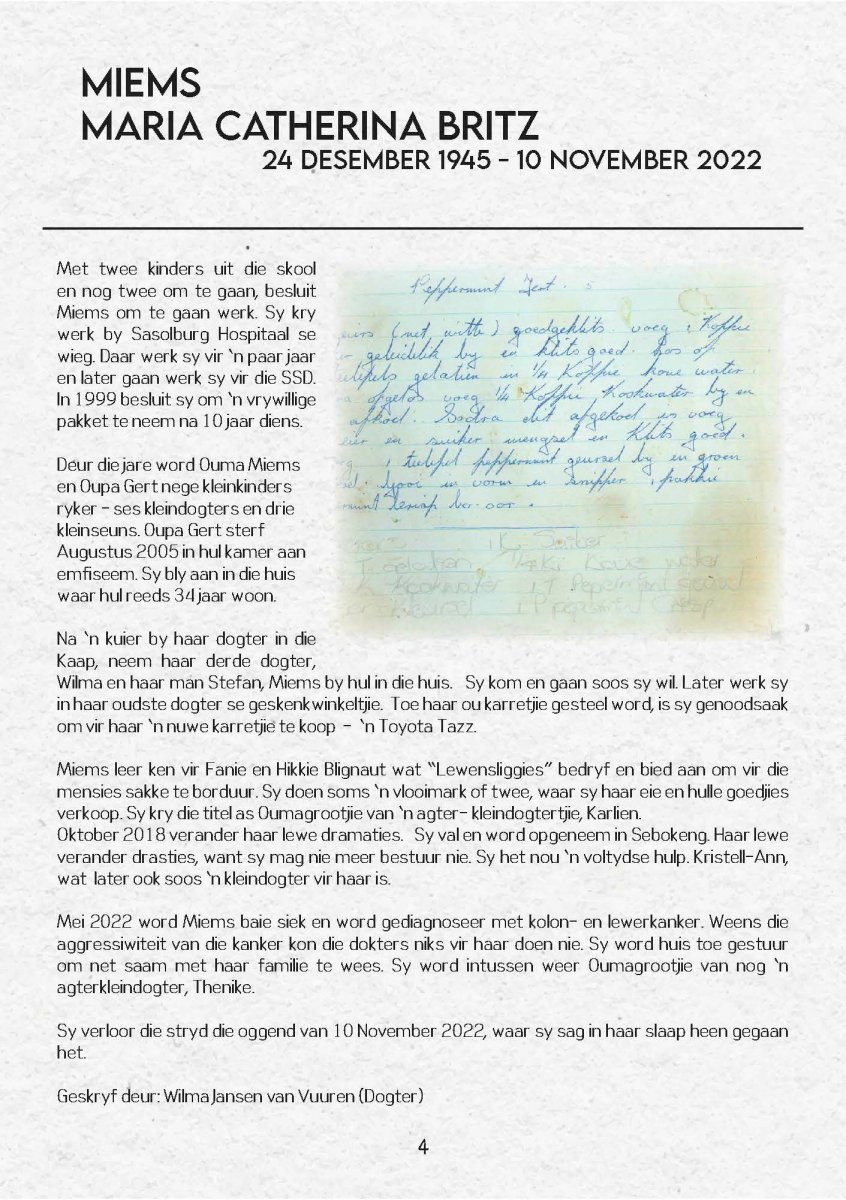 MIEMS
MARIA CATHERINA BRITZ
24 DESEMBER 1945 - 10 NOVEMBER 2022
Met twee kinders uit die skool
en nog twee om te gaan, besluit
Miems om te gaan werk. Sy kry
werk by Sasolburg Hospitaal se
wieg. Daar werk sy vir ‘n paar jaar
en later gaan werk sy vir die SSD.
In 1999 besluit sy om ‘n vrywillige
pakket te neem na 10 jaar diens.
Deur die jare word Ouma Miems
en Oupa Gert nege kleinkinders
ryker - ses kleindogters en drie
kleinseuns. Oupa Gert sterf
Augustus 2005 in hul kamer aan
emfiseem. Sy bly aan in die huis
waar hul reeds 34 jaar woon.
Peppermint Tert. 5
(net witte) goedgeklits. voeg 1 Koffie
geleidelik by en klits goed. Los op
gelatien in 1/4 Koffie koue water.
opgelos voeg 1/4 Koffie Kookwater by en
afkoel. Sodra dit afgekoel is voeg
eier en suiker mengsel en Klits goed.
1 teelepel peppermint geursel by en groen
Gooi in vorm en snipper 1 pakkie
crisp bo-oor.
1K Suiker
gelatien 1/4K Koue water
Kookwater 1T Pepermint geursel
1P pepermint Crisp
Na ‘n kuier by haar dogter in die
Kaap, neem haar derde dogter,
Wilma en haar man Stefan, Miems by hul in die huis. Sy kom en gaan soos sy wil. Later werk sy
in haar oudste dogter se geskenkwinkeltjie. Toe haar ou karretjie gesteel word, is sy genoodsaak
om vir haar ‘n nuwe karretjie te koop - ‘n Toyota Tazz.
Miems leer ken vir Fanie en Hikkie Blignaut wat “Lewensliggies” bedryf en bied aan om vir die
mensies sakke te borduur. Sy doen soms ‘n vlooimark of twee, waar sy haar eie en hulle goedjies
verkoop. Sy kry die titel as Oumagrootjie van ‘n agter- kleindogtertjie, Karlien.
Oktober 2018 verander haar lewe dramaties. Sy val en word opgeneem in Sebokeng. Haar lewe
verander drasties, want sy mag nie meer bestuur nie. Sy het nou ‘n voltydse hulp. Kristell-Ann,
wat later ook soos ‘n kleindogter vir haar is.
Mei 2022 word Miems baie siek en word gediagnoseer met kolon- en lewerkanker. Weens die
aggressiwiteit van die kanker kon die dokters niks vir haar doen nie. Sy word huis toe gestuur
om net saam met haar familie te wees. Sy word intussen weer Oumagrootjie van nog ‘n
agterkleindogter, Thenike.
Sy verloor die stryd die oggend van 10 November 2022, waar sy sag in haar slaap heen gegaan
het.
Geskryf deur: Wilma Jansen van Vuuren (Dogter)
4